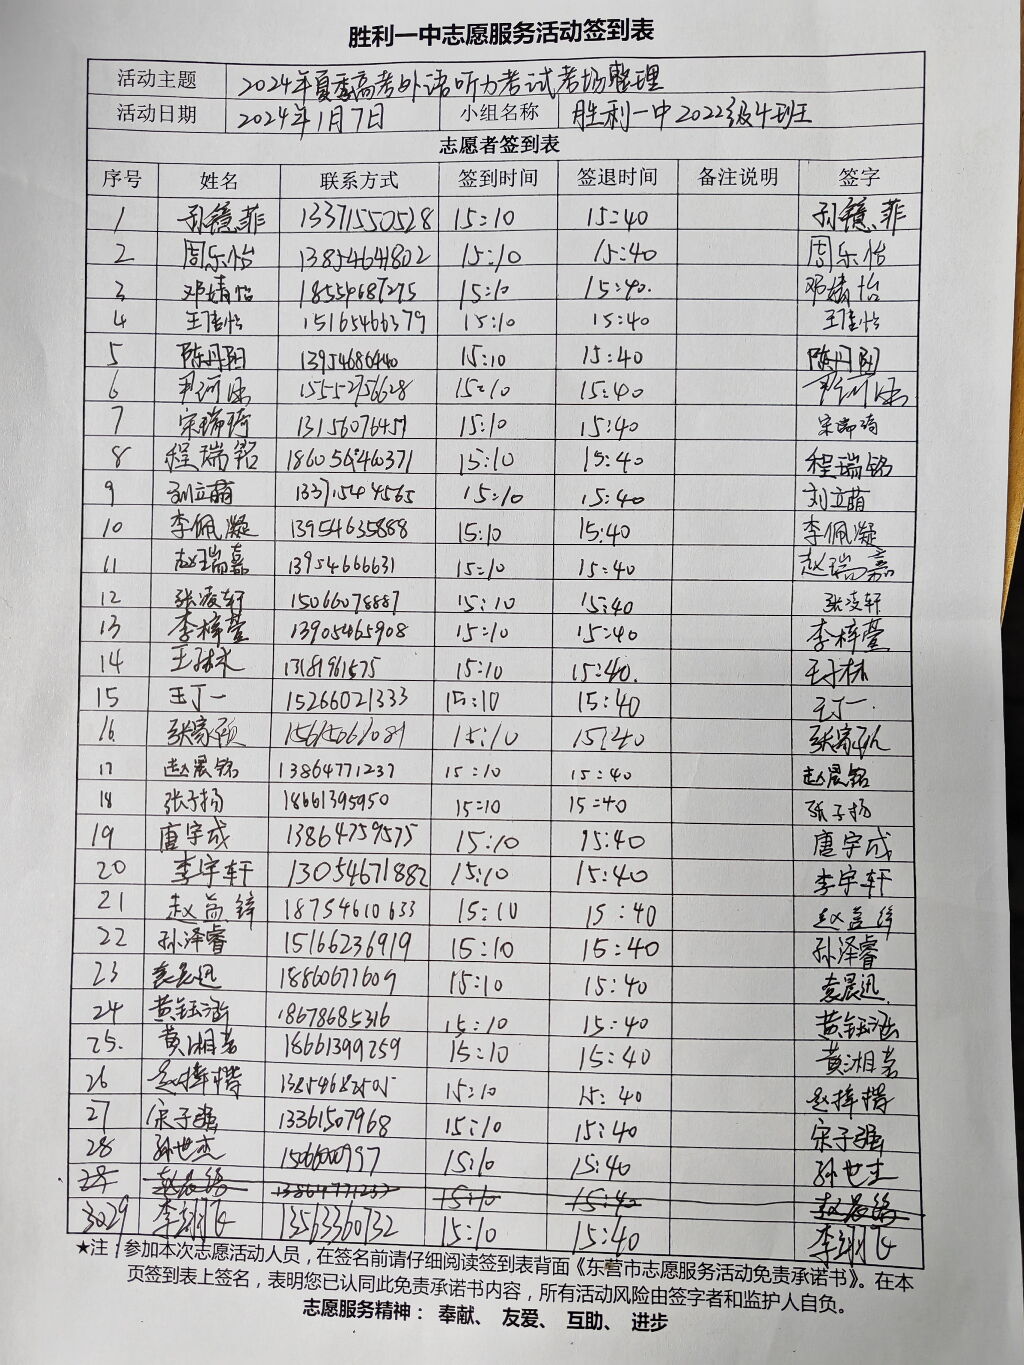 胜利一中志愿服务活动签到表
活动主题 2024年夏季高考外语听力考试考场整理
活动日期 2024年1月7日 小组名称 胜利一中2022级4班
志愿者签到表
序号 姓名 联系方式 签到时间 签退时间 备注说明 签字
1 孙镱菲 13371550528 15:10 15:40 孙镱菲
2 周乐怡 13854641802 15:10 15:40 周乐怡
3 邓婧怡 18554687275 15:10 15:40. 邓婧怡
4 王佳怡 15165466379 15:10 15:40 王佳怡
5 陈丹阳 13954686440 15:10 15:40 陈丹阳
6 15552756628 15:10 15:40
7 宋瑞琦 13156076457 15:10 15:40 宋瑞琦
8 程瑞铭 186056460371 15:10 15:40 程瑞铭
9 刘立萌 13371544565 15:10 15:40 刘立萌
10 李佩凝 13954635888 15:10 15:40 李佩凝
11 赵瑞嘉 13954666631 15:10 15:40 赵瑞嘉
12 张凌轩 15066078887 15:10 15:40 张凌轩
13 李梓萱 13905465908 15:10 15:40 李梓萱
14 王子林 15:10 15:40. 王子林
15 王丁一 15266021333 15:10 15:40 王丁一.
16. 张家 15615061081 15:10 15:40 张家
17 赵晨铭 13864771237 15:10 15:40 赵晨铭
18 张子扬 18661395950 15:10 15:40 张子扬
19 唐宇成 13864759575 15:10 15:40 唐宇成
20 李宇轩 13054671882 15:10 15:40 李宇轩
21 赵益锋 18754610633 15:10 15:40 赵益锋
22 孙泽睿 15166236919 15:10 15:40 孙泽睿
23 袁晨迅 18860677609 15:10 15:40 袁晨迅
24 黄钰涵 18678685316 15:10 15:40 黄钰涵
25. 黄湘茗 18661399259 15:10 15:40 黄湘茗
26 15:10 15:40
27 宋子强 13361507968 15:10 15:40 宋子强
28 孙世杰 15066000997 15:10 15:40 孙世杰
赵晨铭 13864771237 15:10 15:40 赵晨铭
3029 李翊飞 13563360732 15:10 15:40 李翊飞
★注：参加本次志愿活动人员，在签名前请仔细阅读签到表背面《东营市志愿服务活动免责承诺书》。在本
页签到表上签名，表明您已认同此免责承诺书内容，所有活动风险由签字者和监护人自负。
志愿服务精神： 奉献、 友爱、 互助、 进步